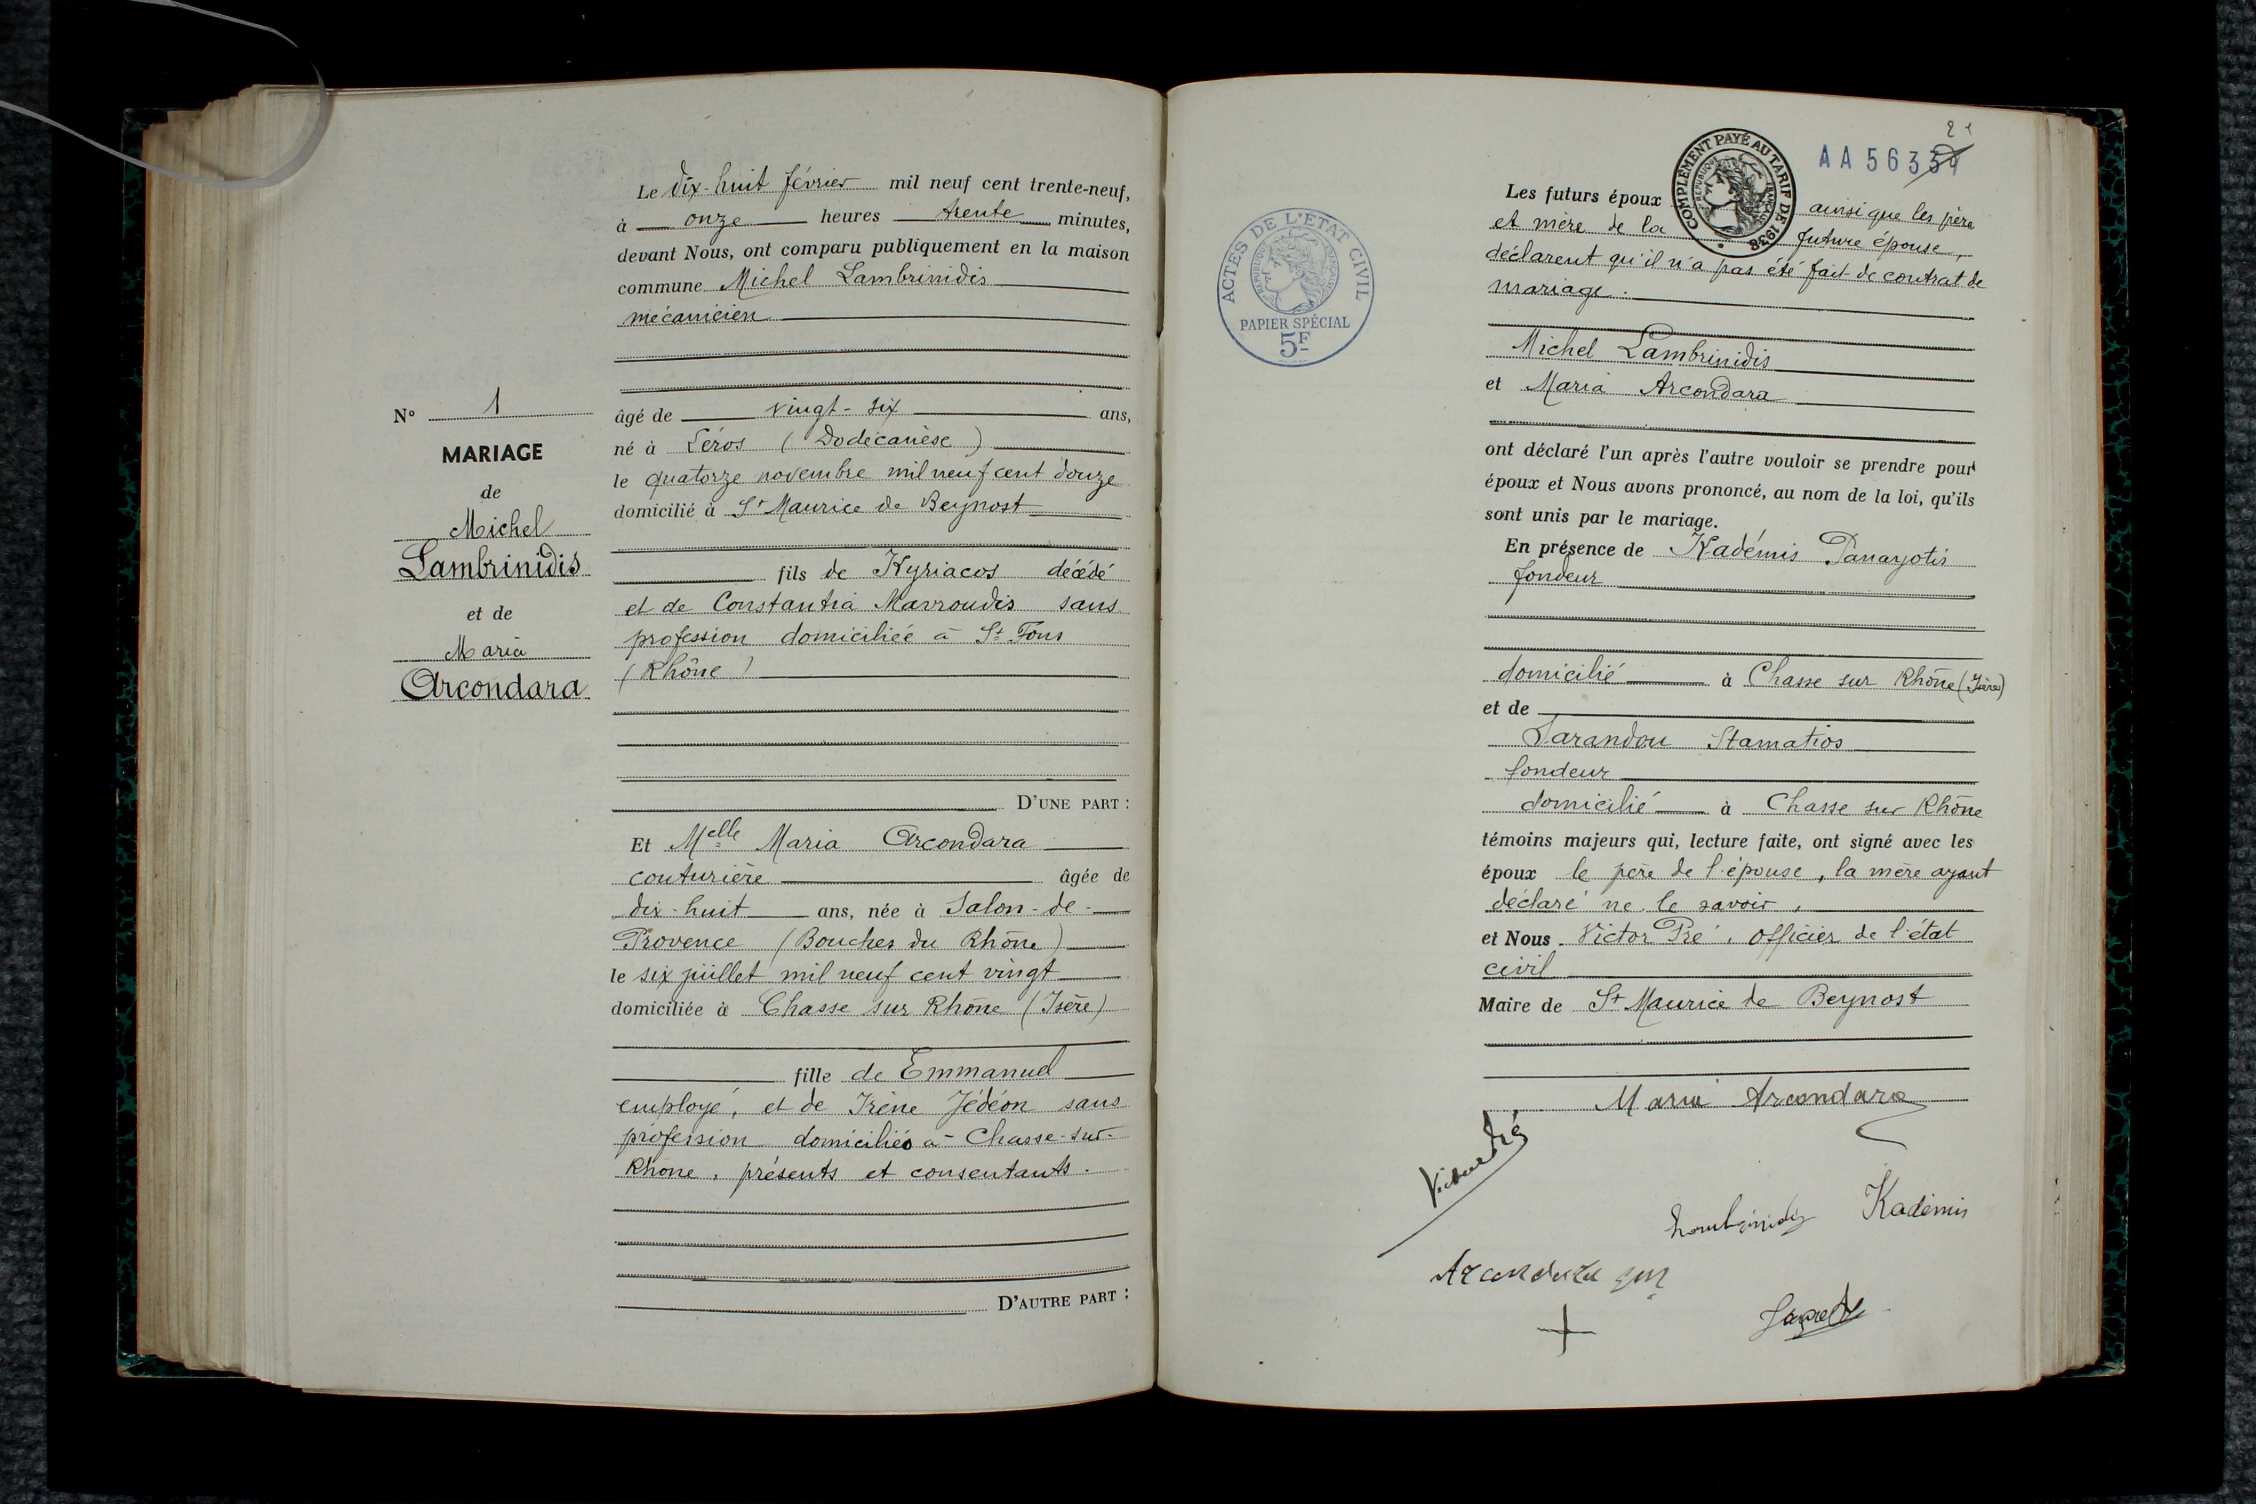 Le dix-huit février mil neuf cent trente-neuf,
à onze heures trente minutes,
devant Nous, ont comparu publiquement en la maison
commune Michel Lambrinidis
mécanicien
N° 1
MARIAGE
de
Michel
Lambrinidis
et de
Maria
Arcondara
âgé de vingt-six ans,
né à Léros (Dodécanèse)
le quatorze novembre mil neuf cent douze
domicilié à St Maurice de Beynost
fils de Kyriacos décédé
et de Constantia Mavroudis sans
profession domiciliée à St Fons
(Rhône)
D'UNE PART :
Et Melle Maria Arcondara
couturière âgée de
dix-huit ans, née à Salon-de-
Provence (Bouches du Rhône)
le six juillet mil neuf cent vingt
domiciliée à Chasse sur Rhône (Isère)
fille de Emmanuel
employé, et de Irène Jédéon sans
profession domiciliés à Chasse-sur-
Rhône, présents et consentants.
D'AUTRE PART :
ACTES DE L'ETAT CIVIL
REPUBLIQUE FRANÇAISE
PAPIER SPÉCIAL
5F
21
AA 56334
COMPLÉMENT PAYÉ AU TARIF DE 1938
REPUBLIQUE FRANÇAISE
Les futurs époux ainsi que les père
et mère de la future épouse,
déclarent qu'il n'a pas été fait de contrat de
mariage.
Michel Lambrinidis
et Maria Arcondara
ont déclaré l'un après l'autre vouloir se prendre pour
époux et Nous avons prononcé, au nom de la loi, qu'ils
sont unis par le mariage.
En présence de Kadémis Panayotis
fondeur
domicilié à Chasse sur Rhône (Isère)
et de
Sarandou Stamatios
fondeur
domicilié à Chasse sur Rhône
témoins majeurs qui, lecture faite, ont signé avec les
époux le père de l'épouse, la mère ayant
déclaré ne le savoir,
et Nous Victor Pré, officier de l'état
civil
Maire de St Maurice de Beynost
Maria Arcondara
Victor Pré
Lambrinidis
Kadémis